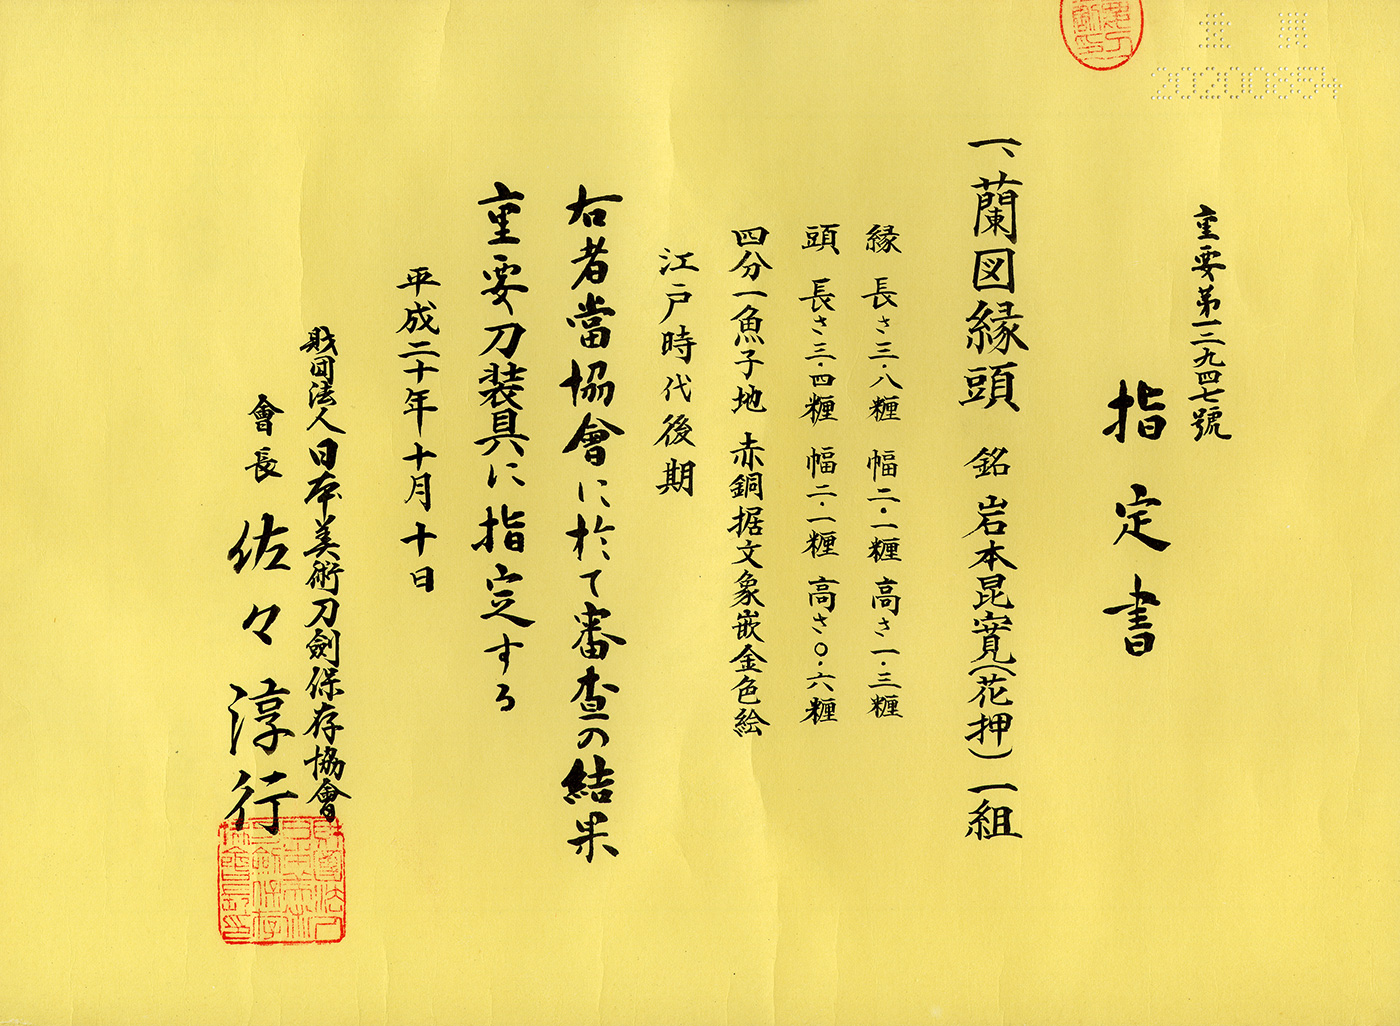 重要
20200654
重要第一二九四七號
指定書
一、蘭図縁頭 銘 岩本昆寛(花押) 一組
縁 長さ三・八糎 幅二・一糎 高さ一・三糎
頭 長さ三・四糎 幅二・一糎 高さ〇・六糎
四分一魚子地 赤銅据文象嵌金色絵
江戸時代後期
右者當協會に於て審査の結果
重要刀装具に指定する
平成二十年十月十日
財団法人日本美術刀劍保存協會
會長 佐々淳行